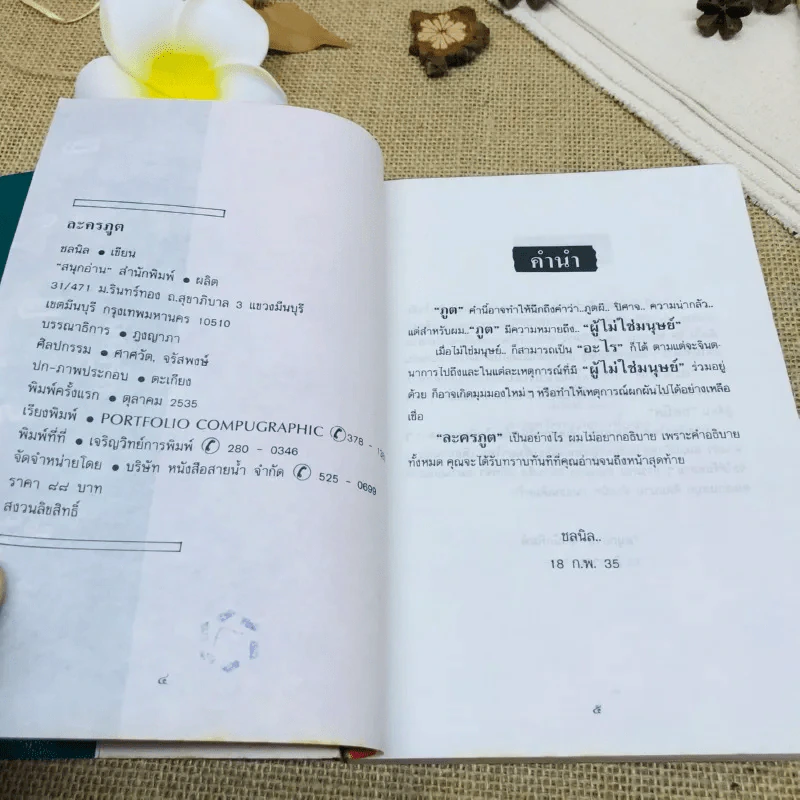 ละครภูต
ชลนิล ● เขียน
"สนุกอ่าน" สำนักพิมพ์ ● ผลิต
31/471 ม.รินทร์ทอง ถ.สุขาภิบาล 3 แขวงมีนบุรี
เขตมีนบุรี กรุงเทพมหานคร 10510
บรรณาธิการ ● ฎงญาภา
ศิลปกรรม ● ศาศวัต, จรัสพงษ์
ปก-ภาพประกอบ ● ตะเกียง
พิมพ์ครั้งแรก ● ตุลาคม 2535
เรียงพิมพ์ ● PORTFOLIO COMPUGRAPHIC ✆ 378 -
พิมพ์ที่ที่ ● เจริญวิทย์การพิมพ์ ✆ 280 - 0346
จัดจำหน่ายโดย ● บริษัท หนังสือสายน้ำ จำกัด ✆ 525 - 0699
ราคา ๘๘ บาท
สงวนลิขสิทธิ์
๔
คำนำ
"ภูต" คำนี้อาจทำให้นึกถึงคำว่า..ภูตผี.. ปีศาจ.. ความน่ากลัว..
แต่สำหรับผม.."ภูต" มีความหมายถึง.. "ผู้ไม่ใช่มนุษย์"
เมื่อไม่ใช่มนุษย์.. ก็สามารถเป็น "อะไร" ก็ได้ ตามแต่จะจินต-
นาการไปถึงและในแต่ละเหตุการณ์ที่มี "ผู้ไม่ใช่มนุษย์" ร่วมอยู่
ด้วย ก็อาจเกิดมุมมองใหม่ ๆ หรือทำให้เหตุการณ์ผกผันไปได้อย่างเหลือ
เชื่อ
"ละครภูต" เป็นอย่างไร ผมไม่อยากอธิบาย เพราะคำอธิบาย
ทั้งหมด คุณจะได้รับทราบทันทีที่คุณอ่านจนถึงหน้าสุดท้าย
ชลนิล..
18 ก.พ. 35
๕